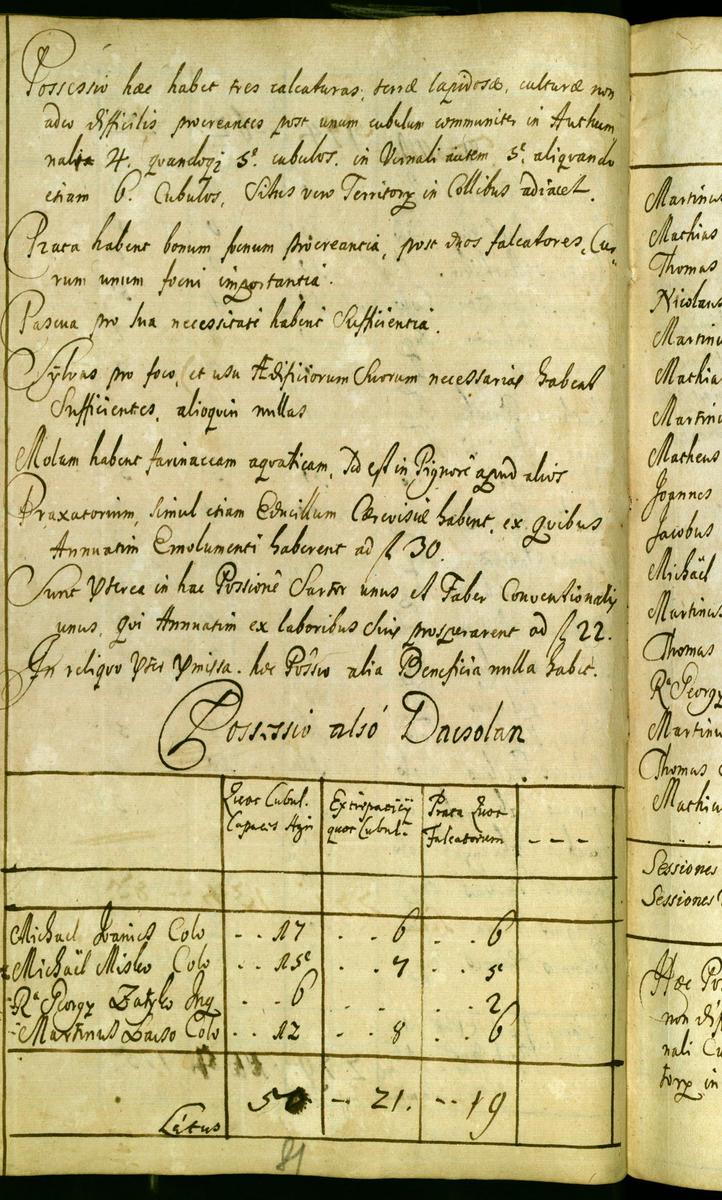 Possessio hæc habet tres calcaturas, terræ lapidosæ, culturæ non
adeo difficilis procreantes post unum cubulum communiter in Authum,
nalia 4. quandoqz 5. cubulos. in Vernali autem 5. aliquando
etiam 6. Cubulos, Situs vero Territory in Collibus adiacet.
Prata habent bonum foenum procreantia, post duos falcatores, Cur-
rum unum foeni importantia.
Pascua pro sua necessitate habent Sufficientia.
Sÿlvas pro foco, et usu Ædificiorum Suorum necessarias habent
Sufficientes, alioquin nullas
Molam habent farinaceam aquaticam, sed est in Pignore apud alios
Braxatorium, simul etiam Educillum Cærevisiæ habent, ex quibus
Annuatim Emolumenti haberent ad f 30.
Sunt pterea in hac Possione Sartor unus et Faber Conventionalis
unus, qui Annuatim ex laboribus suis prosperarent ad f 22.
In reliquo pter pmissa. hæc Possio alia Beneficia nulla habet.
Possessio alsó Dacsolan
Quot Cubul. Extirpatiÿ Prata Quot
Capaces Agri quot Cubul. Falcatorum - - -
Michael Ivanics Colo . . 17 . . 6 . . 6
Michaël Misko Colo . . 15 . . 7 . . 5
Ra Georgy Zatyko Inq . . 6 . . . . 2
Martinus Dacso Colo . . 12 . . 8 . . 6
Látus 50 -- 21. -- 19
Martinus
Mathias
Thomas
Nicolaus
Martinu
Mathia
Martin
Matheus
Joannes
Jacobus
Michaël
Martinus
Thomas
Ra Georgy
Martinu
Thomas
Mathia
Sessiones
Sessiones
Hæc Po
non dif
nali Cu
tory in